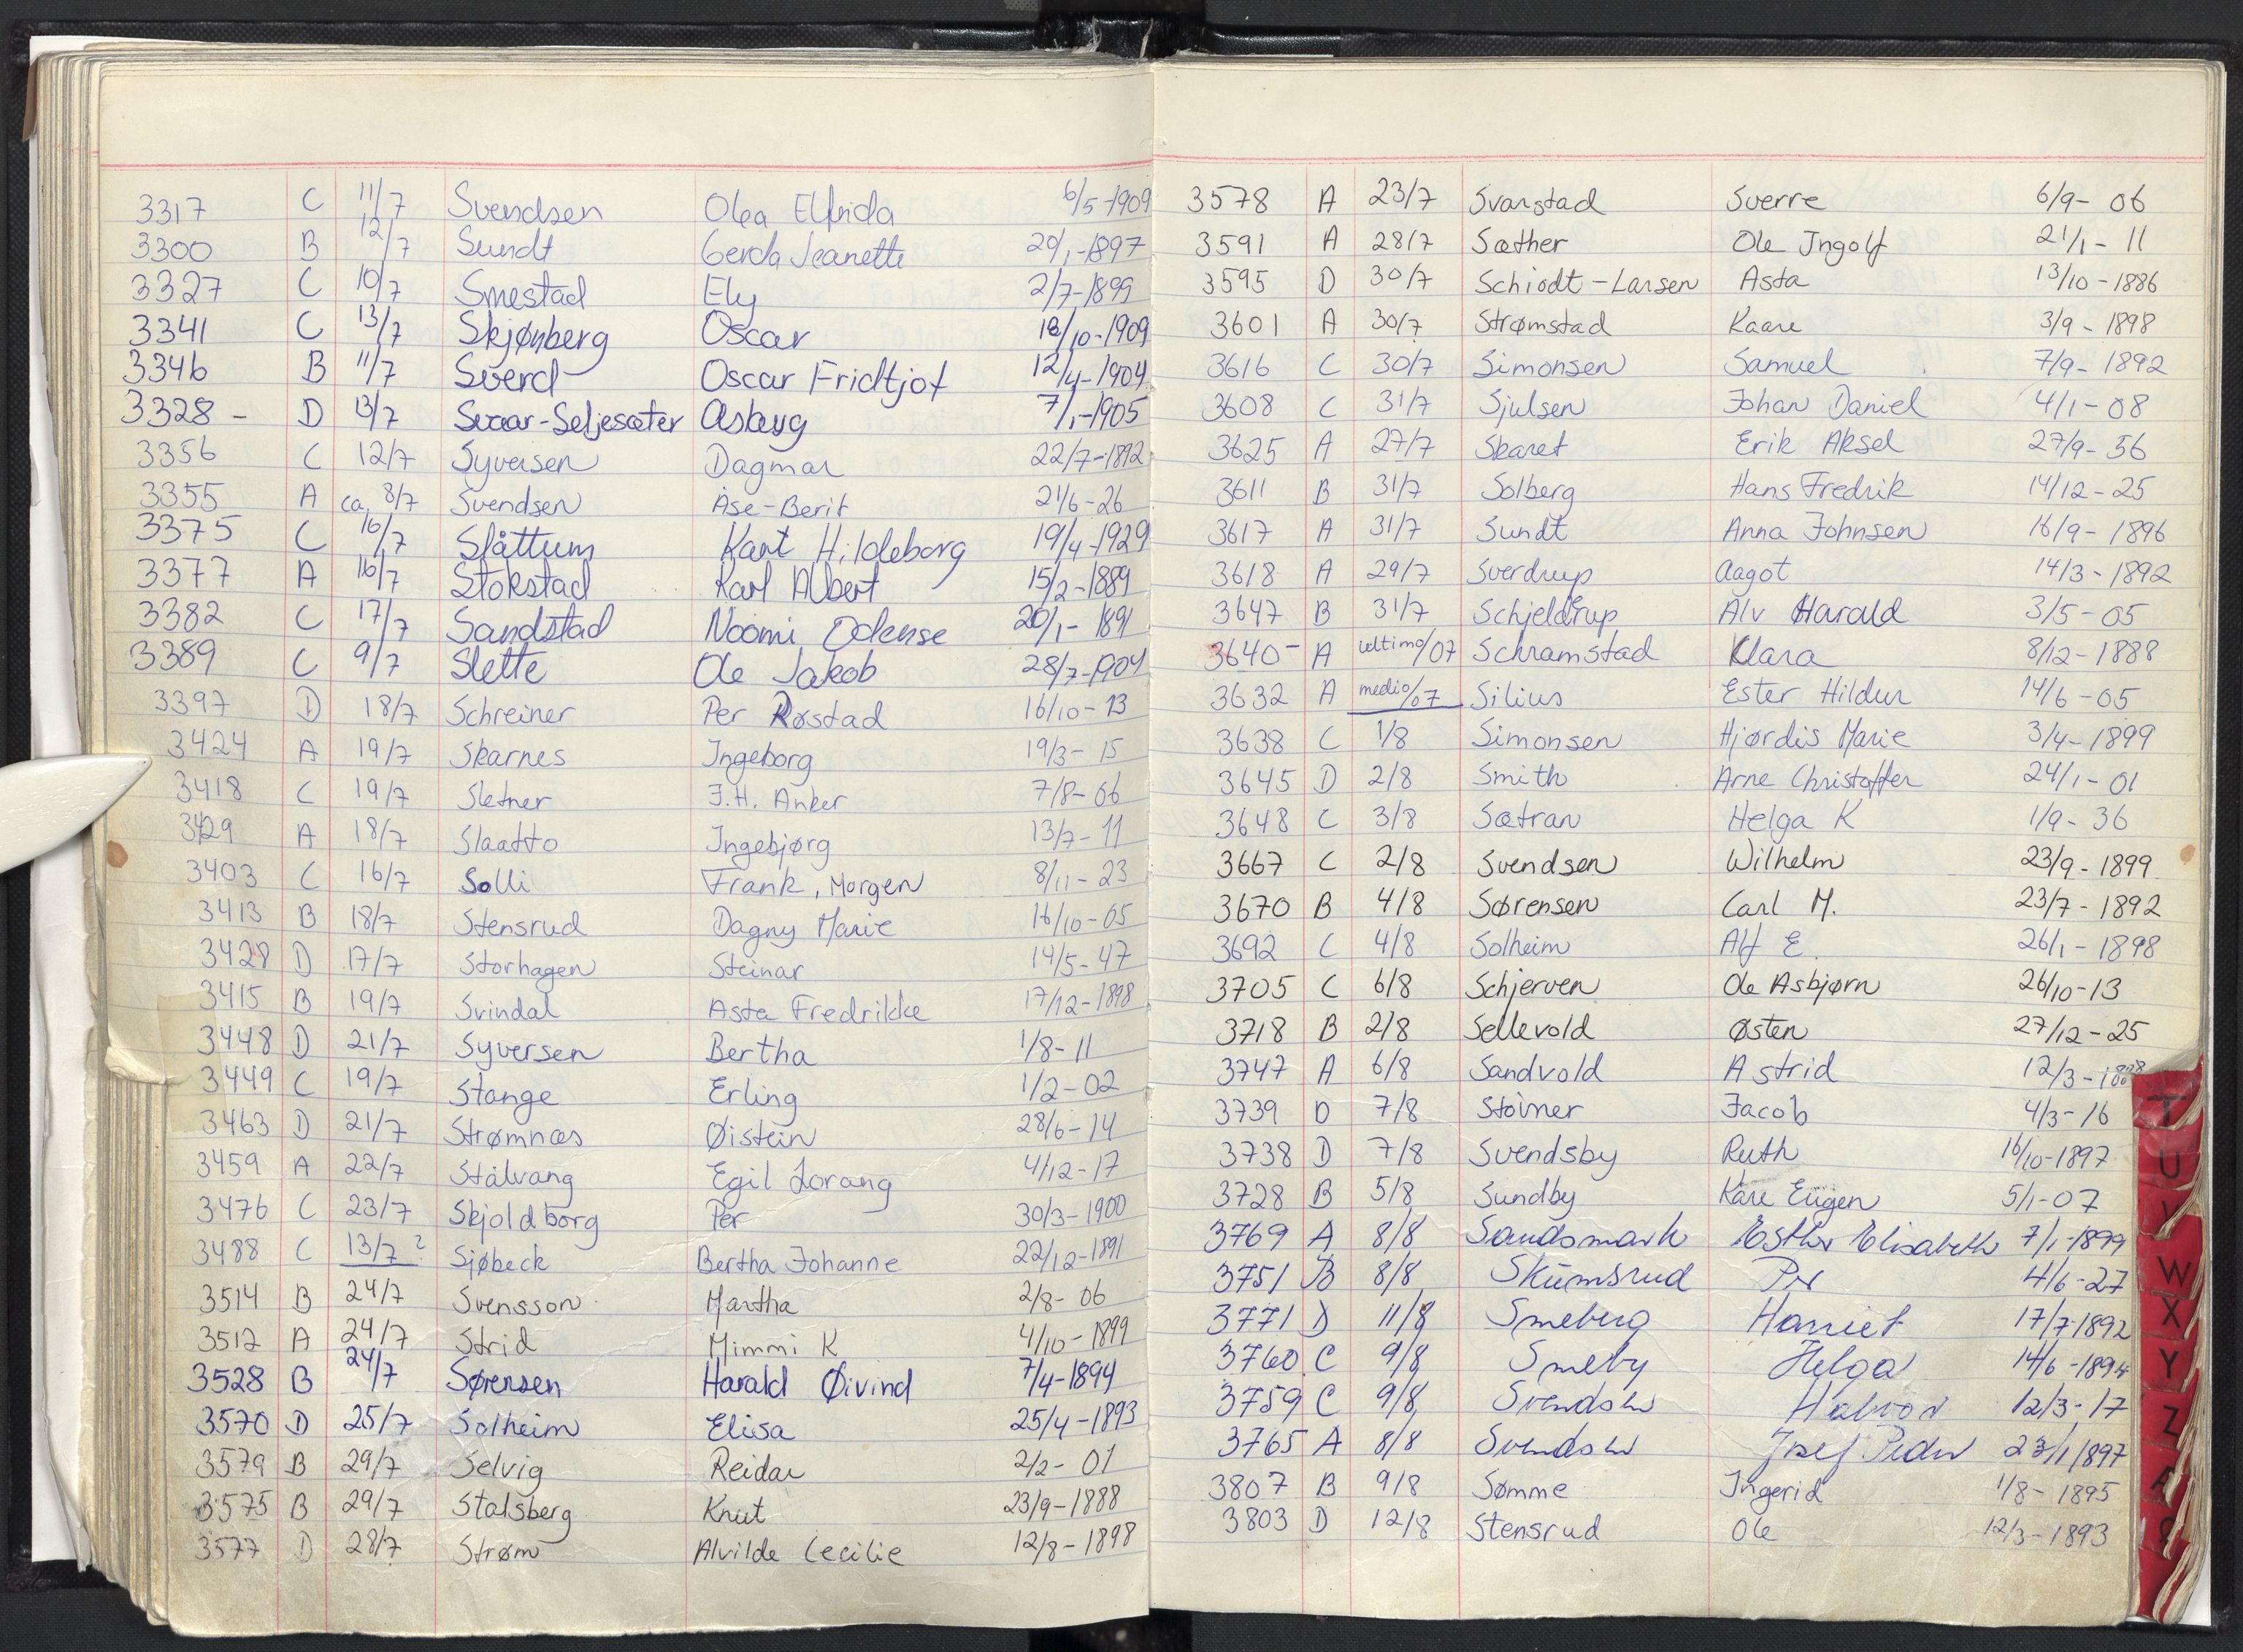 3317 C 11/7 Svendsen Olea Elfrida 6/5-1909
3300 B 12/7 Sundt Gerda Jeanette 20/1-1897
3327 C 10/7 Smestad Ely 2/7-1899
3341 C 13/7 Skjønberg Oscar 18/10-1909
3346 B 11/7 Sverd Oscar Fridtjof 12/4-1904
3328 - D 13/7 Svaar-Seljesæter Asberg 7/1-1905
3356 C 12/7 Syversen Dagmar 22/7-1892
3355 A ca. 8/7 Svendsen Åse-Berit 21/6-26
3375 C 16/7 Slåttum Kant Hildeborg 19/4-1929
3377 A 16/7 Stokstad Karl Albert 15/2-1889
3382 C 17/7 Sandstad Noomi Odense 20/1-1891
3389 C 9/7 Slette Ole Jakob 28/7-1904
3397 D 18/7 Schreiner Per Røstad 16/10-13
3424 A 19/7 Skarnes Ingeborg 19/3-15
3418 C 19/7 Sletner J.H. Anker 7/8-06
3429 A 18/7 Slaatto Ingebjørg 13/7-11
3403 C 16/7 Solli Frank, Morgen 8/11-23
3413 B 18/7 Stensrud Dagny Marie 16/10-05
3428 D 17/7 Storhagen Steinar 14/5-47
3415 B 19/7 Svindal Asta Fredrikke 17/12-1898
3448 D 21/7 Syversen Bertha 1/8-11
3449 C 19/7 Stange Erling 1/2-02
3463 D 21/7 Strømnæs Øistein 28/6-14
3459 A 22/7 Stålvang Egil Lorang 4/12-17
3476 C 23/7 Skjoldborg Per 30/3-1900
3488 C 13/7 ? Sjøbeck Bertha Johanne 22/12-1891
3514 B 24/7 Svensson Martha 2/8-06
3512 A 24/7 Strid Mimmi K 4/10-1899
3528 B 24/7 Sørensen Harald Øivind 7/4-1894
3570 D 25/7 Solheim Elisa 25/4-1893
3579 B 29/7 Selvig Reidar 2/2-01
3575 B 29/7 Stalsberg Knut 23/9-1888
3577 D 28/7 Strøm Alvilde Cecilie 12/8-1898
3578 A 23/7 Svanstad Sverre 6/9-06
3591 A 28/7 Sæther Ole Ingolf 21/1-11
3595 D 30/7 Schiødt-Larsen Asta 13/10-1886
3601 A 30/7 Strømstad Kaare 3/9-1898
3616 C 30/7 Simonsen Samuel 7/9-1892
3608 C 31/7 Sjulsen Johan Daniel 4/1-08
3625 A 27/7 Skaret Erik Aksel 27/9-56
3611 B 31/7 Solberg Hans Fredrik 14/12-25
3617 A 31/7 Sundt Anna Johnsen 16/9-1896
3618 A 29/7 Sverdrup Aagot 14/3-1892
3647 B 31/7 Schjelderup Alv Harald 3/5-05
3640 - A ultimo/07 Schramstad Klara 8/12-1888
3632 A medio/07 Silius Ester Hildur 14/6-05
3638 C 1/8 Simonsen Hjørdis Marie 3/4-1899
3645 D 2/8 Smith Arne Christoffer 24/1-01
3648 C 3/8 Sætran Helga K 1/9-36
3667 C 2/8 Svendsen Wilhelm 23/9-1899
3670 B 4/8 Sørensen Carl M. 23/7-1892
3692 C 4/8 Solheim Alf E. 26/1-1898
3705 C 6/8 Schjerven Ole Asbjørn 26/10-13
3718 B 2/8 Sellevold Østen 27/12-25
3747 A 6/8 Sandvold Astrid 12/3-
3739 D 7/8 Støvner Jacob 4/3-16
3738 D 7/8 Svendsby Ruth 16/10-1897
3728 B 5/8 Sundby Kåre Eugen 5/1-07
3769 A 8/8 Sandsmark Esther Elisabeth 7/1-1899
3751 B 8/8 Skumsrud Per 4/6-27
3771 D 11/8 Smeberg Harriet 17/7-1892
3760 C 9/8 Smeby Helga 14/6-1894
3759 C 9/8 Svendsen Halvor 12/3-17
3765 A 8/8 Svendsen Josef Peder 23/1 1897
3807 B 9/8 Sømme Ingerid 1/8-1895
3803 D 12/8 Stensrud Ole 12/3-1893
T
U
W
X
Y
Z